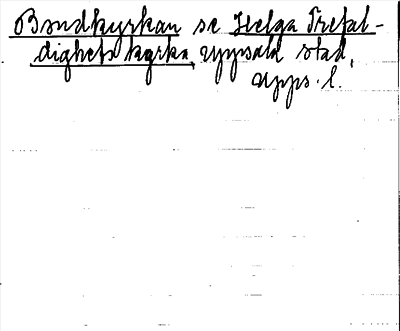 Bondkyrkan se Helga Trefal-
dighets kyrka, Uppsala stad,
Upps. l.